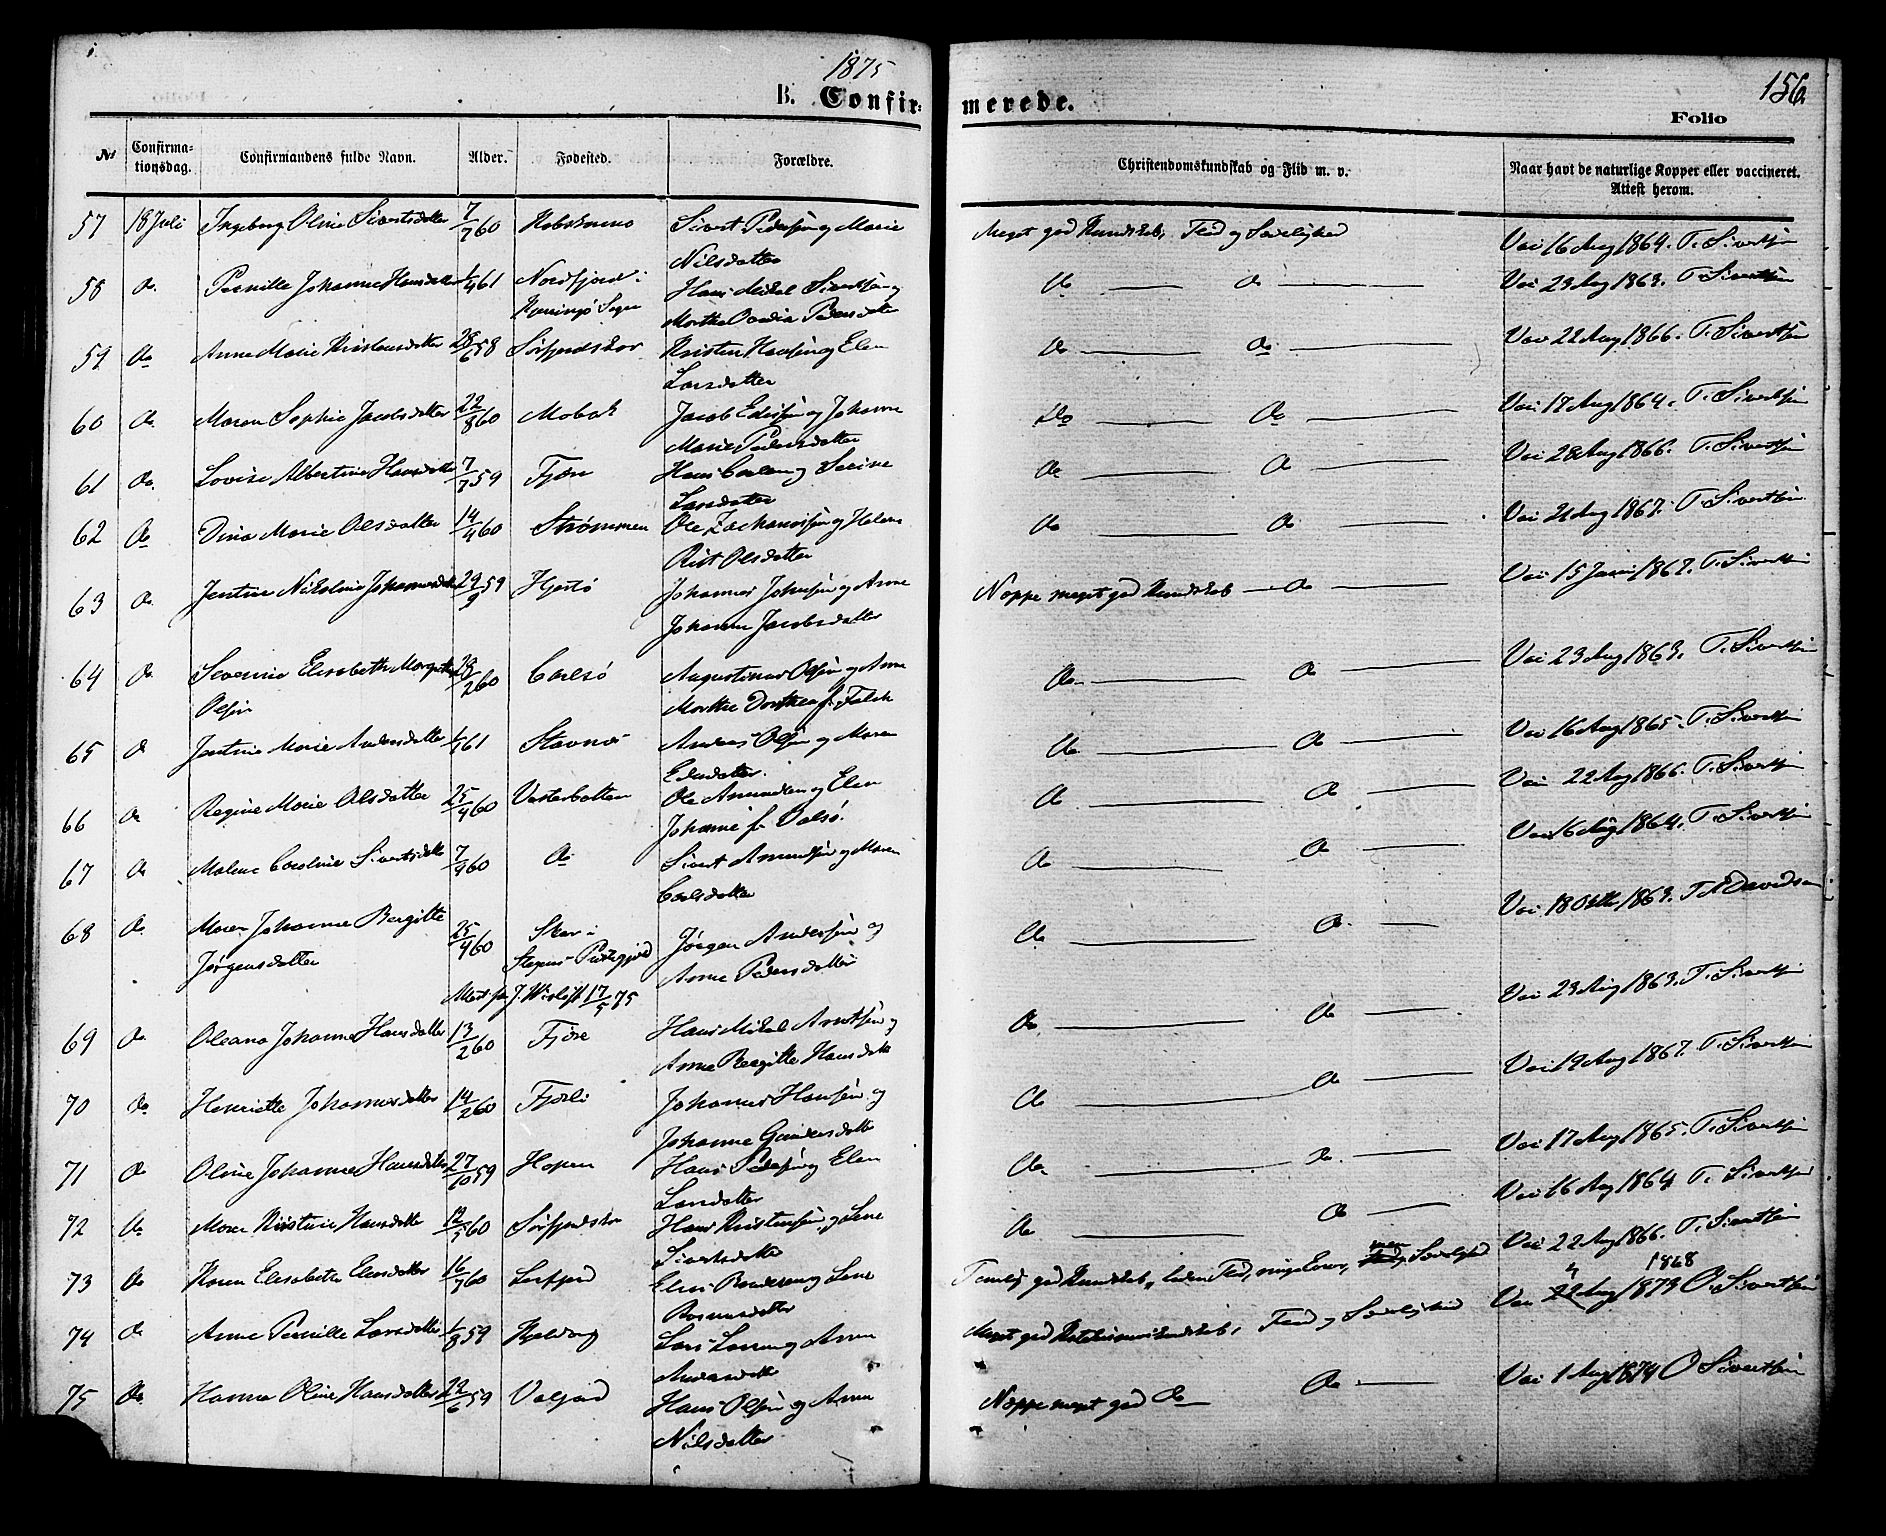 1875
156
B. Confir- merede.
Folio
№ Confirma-tionsdag. Confirmandens fulde Navn. Alder. Fødested. Forældre. Christendomskundskab og Flid m. v. Naar havt de naturlige Kopper eller vaccineret. Attest herom.
57 18 Juli Ingeborg Oline Sivertsdatter 7/7 60 Sivert Pedersen og Marie Meget god Kundskab, Flid og Sædelighed Vac 16 Aug 1864. T. Sivertsen
Nilsdatter
58 do. Pernille Johanne Hansdatter 1/4 61 Nordfjord i do do Vac 23 Aug 1863. T. Sivertsen
Kjerringø Sogn Hans Mikal Sivertsen og
Morthe Pedersdatter
59 do Anne Marie Kristensdatter 58 Sørfjordskar Kristen Hansen og Elen do do Vac 22 Aug 1866. T. Sivertsen
Larsdatter
60 do. Maren Sophie Jacobsdatter 22/8 60 Mobak Jacob og Johanne do do Vac 17 Aug 1864. T. Sivertsen
Marie Pedersdatter
61 do. Lovise Albertine Hansdatter 7/7 59 Fjære Hans og do do Vac 28 Aug 1866. T. Sivertsen
Larsdatter
62 do Dina Marie Olsdatter 14/4 60 Strømmen Ole Zachariasen og Helene do do Vac 21 Aug 1867. T. Sivertsen
Olsdatter
63 do. Jentine Nikoline Johannesdatter 29/9 59 Hjertø Johannes Johnsen og Anne Neppe meget god Kundskab do Vac 15 1867. T. Sivertsen
Johanna Jacobsdatter
64 do. Severine Elisabeth Margrethe 2 60 Carlsø Augustinus Olsen og Anne do do Vac 23 Aug 1863. T. Sivertsen
Olsen Morthe Dorthea f. Falch
65 do Jentine Marie Andersdatter 61 Stavnes Andreas Olsen og Maren do do Vac 16 Aug 1865. T. Sivertsen
66 do Regine Marie Olsdatter 25/4 60 Vesterbotten Ole Amundsen og Elen do do Vac 22 Aug 1866. T. Sivertsen
Johanne f. Valsø.
67 do Malene Caroline Sivertsdatter 7/9 60 do Sivert Amundsen og Maren do do Vac 16 Aug 1864. T. Sivertsen
Carlsdatter
68 do. Maren Johanne Bergitte 25/4 60 Skar i Jørgen Andersen og do do Vac 18 Octbr 1863. Davidsen
Jørgensdatter Stegens Præstegjeld Anne Pedersdatter
17/5 75
69 do. Oleana Johanne Hansdatter 13/2 60 Fjøre Hans Mikal Arntsen og do do Vac 23 Aug 1863. T. Sivertsen
Anne Bergitte Hansdatter
70 do Henriette Johannesdatter 14/2 60 Johannes Hansen og do do Vac 19 Aug 1867. T. Sivertsen
Johanne Gundersdatter
71 do Oline Johanne Hansdatter 27/10 59 Hopen Hans Pedersen og Elen do do Vac 17 Aug 1865. T. Sivertsen
Larsdatter
72 do Maren Kristine Hansdatter 12/5 60 Sørfjordskar Hans Kristensen og Lene do do Vac 16 Aug 1864 T. Sivertsen
Sivertsdatter
73 do Karen Elisabeth Eliasdatter 16/7 60 Leifjord Elias og Lene Temlig god Kundskab, liden Flid, ringe Evner, men Sædelighed Vac 22 Aug 1866. T. Sivertsen
Rasmusdatter
74 do Anne Pernille Larsdatter 1/8 59 Lars Larsen og Anne Meget god Katekismuskundskab, Flid og Sædelighed Vac Aug 1868 O. Sivertsen
Andersdatter
75 do Hanna Oline Hansdatter 22/6 59 Valfjord Hans Olsen og Anne Neppe meget god do do Vac 1 Aug 1874 O Sivertsen
Nilsdatter